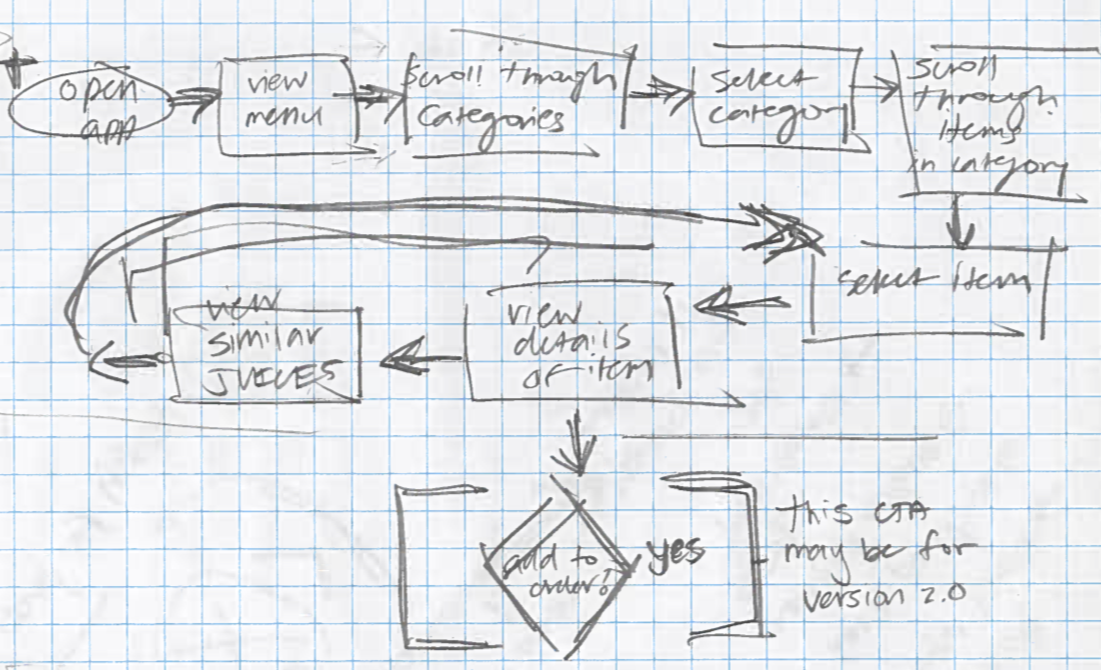 open
app
view
menu
Scroll through
Categories
Select
category
Scroll
through
items
in category
select item
view
details
of item
view
similar
JUICES
add to
order?
yes
this CTA
may be for
version 2.0